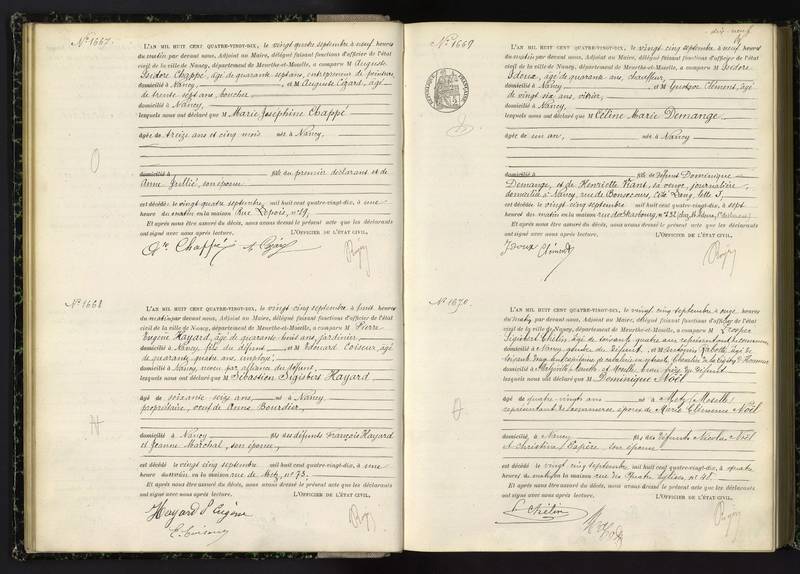 N° 1667.
L'AN MIL HUIT CENT QUATRE-VINGT-DIX, le vingt quatre septembre à neuf heures
du matin par devant nous, Adjoint au Maire, délégué faisant fonctions d'officier de l'état
civil de la ville de Nancy, département de Meurthe-et-Moselle, a comparu M Auguste
Isidore Chappé, âgé de quarante sept ans, entrepreneur de peinture,
domicilié à Nancy, et M Auguste Cézard, âgé
de trente sept ans, boucher
domicilié à Nancy,
lesquels nous ont déclaré que M Marie Joséphine Chappé
âgée de treize ans et cinq mois née à Nancy,
domiciliée à fille du premier déclarant et de
Anne Jullié, son épouse
est décédée le vingt quatre septembre mil huit cent quatre-vingt-dix, à une
heure du matin en la maison Rue Lepois, n° 19,
Et après nous être assuré du décès, nous avons dressé le présent acte que les déclarants
ont signé avec nous après lecture. L'OFFICIER DE L'ÉTAT CIVIL,
Chappé
N° 1668
L'AN MIL HUIT CENT QUATRE-VINGT-DIX, le vingt cinq septembre à huit heures
du matin par devant nous, Adjoint au Maire, délégué faisant fonctions d'officier de l'état
civil de la ville de Nancy, département de Meurthe-et-Moselle, a comparu M Pierre
Eugène Hayard, âgé de quarante huit ans, jardinier,
domicilié à Nancy, fils du défunt, et M Edouard Coiseur, âgé
de quarante quatre ans, employé,
domicilié à Nancy, neveu par alliance du défunt,
lesquels nous ont déclaré que M Sébastien Sigisbert Hayard
âgé de soixante seize ans, né à Nancy,
propriétaire, veuf de Anne Bourdier,
domicilié à Nancy fils des défunts François Hayard
et Jeanne Marchal, son épouse,
est décédé le vingt cinq septembre mil huit cent quatre-vingt-dix, à une
heure du matin en la maison rue de Metz, n° 73.
Et après nous être assuré du décès, nous avons dressé le présent acte que les déclarants
ont signé avec nous après lecture. L'OFFICIER DE L'ÉTAT CIVIL,
Hayard P. Eugène
dix neuf
N° 1669
L'AN MIL HUIT CENT QUATRE-VINGT-DIX, le vingt cinq septembre à neuf heures
du matin par devant nous, Adjoint au Maire, délégué faisant fonctions d'officier de l'état
civil de la ville de Nancy, département de Meurthe-et-Moselle, a comparu M Isidore
âgé de quarante ans, chauffeur,
domicilié à Nancy, et M Gustave Clément, âgé
de vingt six ans, vitrier,
domicilié à Nancy,
lesquels nous ont déclaré que M Céline Marie Demange
âgée de un an, née à Nancy
domiciliée à fille de défunt Dominique
Demange, et de Henriette Viant, sa veuve, journalière,
domiciliée à Nancy, rue de Bonsecours, cité Lang, lettre J,
est décédée le vingt cinq septembre mil huit cent quatre-vingt-dix, à sept
heures du matin en la maison rue de Strasbourg, n° 132
Et après nous être assuré du décès, nous avons dressé le présent acte que les déclarants
ont signé avec nous après lecture. L'OFFICIER DE L'ÉTAT CIVIL,
Clément
N° 1670.
L'AN MIL HUIT CENT QUATRE-VINGT-DIX, le vingt cinq septembre à onze heures
du matin par devant nous, Adjoint au Maire, délégué faisant fonctions d'officier de l'état
civil de la ville de Nancy, département de Meurthe-et-Moselle, a comparu M Prosper
Sigisbert Thélin, âgé de soixante quatre ans, représentant de commerce
domicilié à Nancy, gendre du défunt, et M Antonin Rabotte, âgé de
soixante ans, capitaine en retraite, Chevalier de la Légion d'Honneur
domicilié à Meurthe et Moselle, beau frère du défunt
lesquels nous ont déclaré que M Dominique Noël
âgé de quatre vingts ans né à Metz (Moselle)
représentant de commerce époux de Marie Clémence Noël
domicilié à Nancy fils des défunts Nicolas Noël
et Christine Lapère son épouse
est décédé le vingt cinq septembre mil huit cent quatre-vingt-dix, à quatre
heures du matin en la maison rue des Quatre Eglises, n° 48.
Et après nous être assuré du décès, nous avons dressé le présent acte que les déclarants
ont signé avec nous après lecture. L'OFFICIER DE L'ÉTAT CIVIL,
Thélin